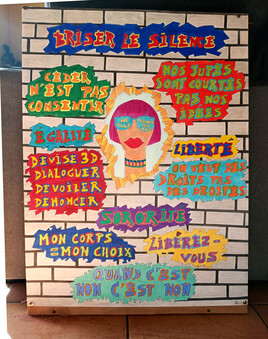 BRISER LE SILENCE
CÉDER
N'EST PAS
CONSENTIR
NOS JUPES
SONT COURTES
PAS NOS
IDÉES
ÉGALITÉ
LIBERTÉ
DEVISE 3D
DIALOGUER
DÉVOILER
DÉNONCER
ON VEUT DES
DROITS PAS
DES DROITES
SORORITÉ
MON CORPS
= MON CHOIX
LIBÉREZ-
VOUS
QUAND C'EST
NON C'EST NON